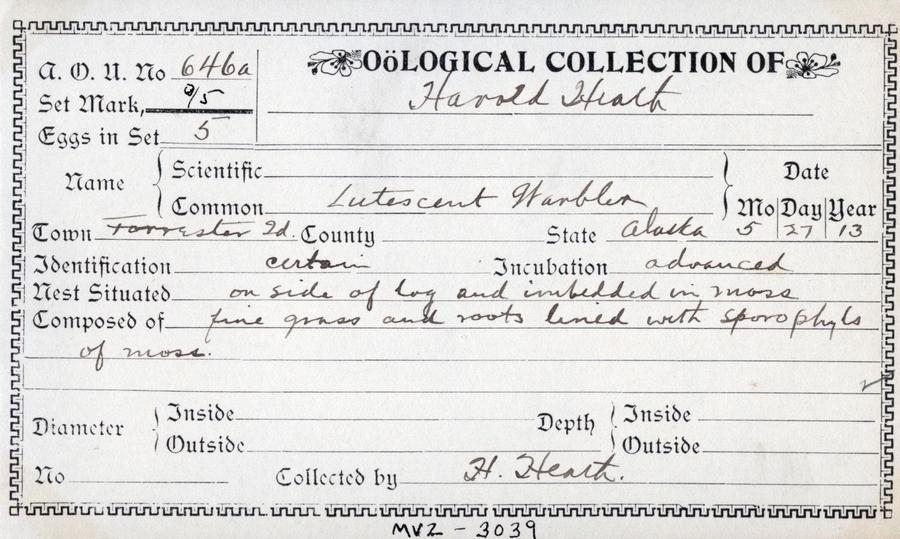 A. O. U. No 646a
OöLOGICAL COLLECTION OF
Set Mark, 9/5
Harold Heath
Eggs in Set 5
Name
Scientific
Common Lutescent Warbler
Date
Mo Day Year
Town Forrester Id. County State Alaska 5 27 13
Identification certain Incubation advanced
Nest Situated on side of log and imbedded in moss
Composed of fine grass and roots lined with sporophyls
of moss.
Diameter
Inside
Outside
Depth
Inside
Outside
No Collected by H. Heath.
MVZ - 3039